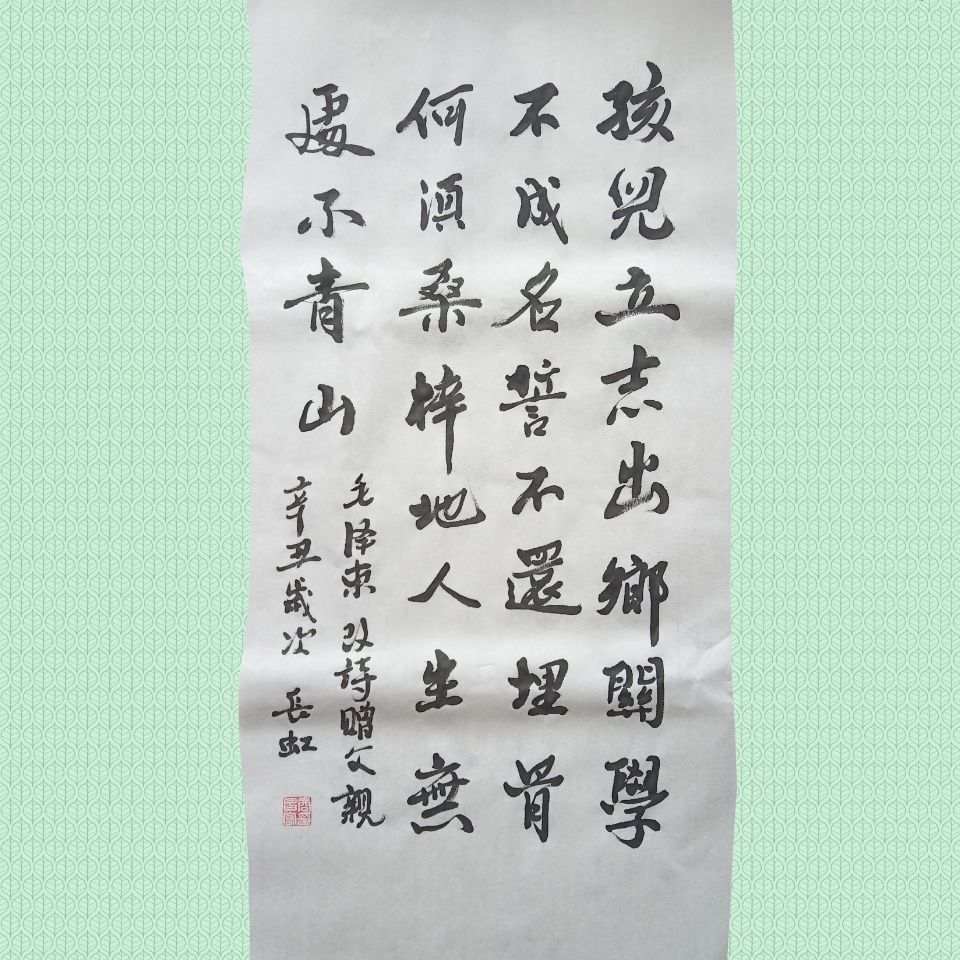 孩兒立志出鄉關學
不成名誓不還埋骨
何須桑梓地人生無
處不青山
毛泽東改詩贈父親
辛丑歲次 長虹